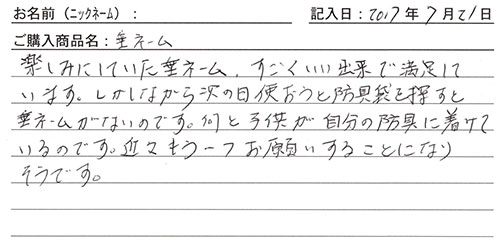 お名前(ニックネーム): 記入日:2017年7月21日
ご購入商品名:垂ネーム
楽しみにしていた垂ネーム、すごくいい出来で満足して
います。しかしながら次の日使おうと防具袋を探すと
垂ネームがないのです。何と子供が自分の防具に着けて
いるのです。近々もう一つお願いすることになり
そうです。